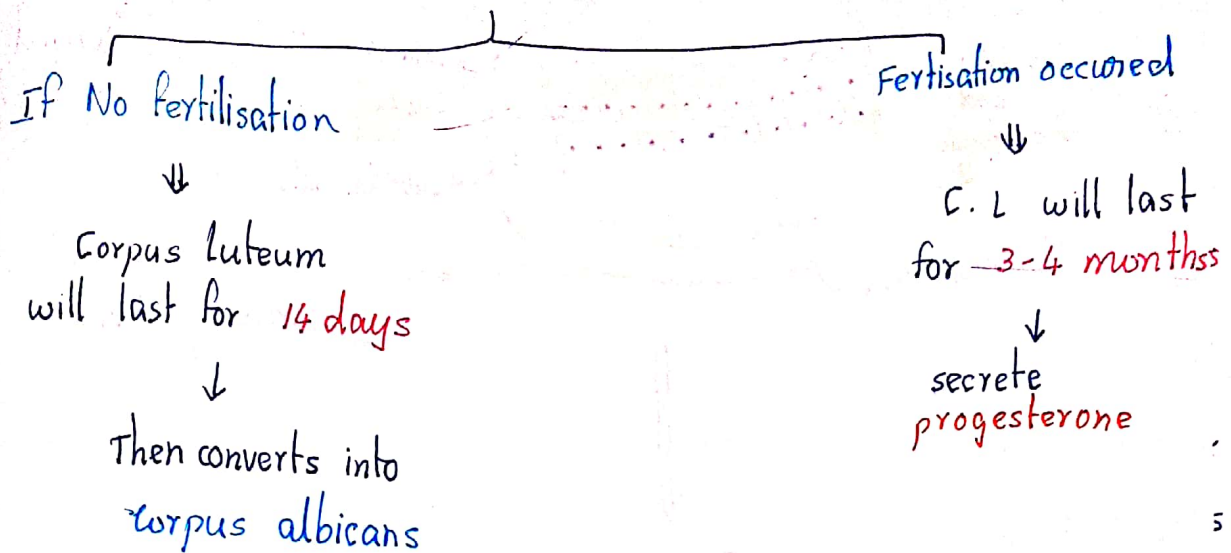 If No fertilisation
⇓
Corpus luteum
will last for 14 days
↓
Then converts into
corpus albicans
Fertisation occured
⇓
C. L will last
for 3-4 monthss
↓
secrete
progesterone
5